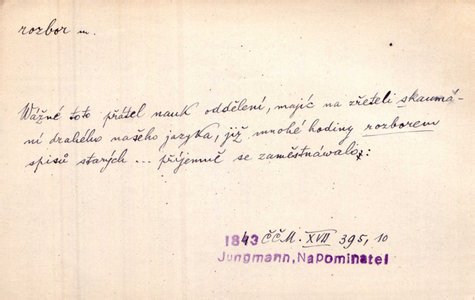 rozbor m.
Vážné toto přátel nauk oddělení, majíc na zřeteli skaumá-
ní drahého našeho jazyka, již mnohé hodiny rozborem
spisů starých ... příjemně se zaměstnáwalo:
1843 ČČM. XVII 395, 10
Jungmann, Napominatel